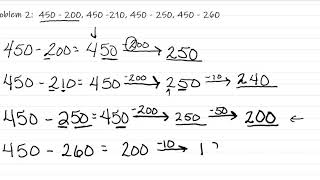 oblem 2: 450 - 200, 450 -210, 450 - 250, 450 - 260
450 - 200 = 450 -200→ 250
450 - 210 = 450 -200→ 250 -10→ 240
450 - 250 = 450 -200→ 250 -50→ 200 ←
450 - 260 = 200 -10→ 1